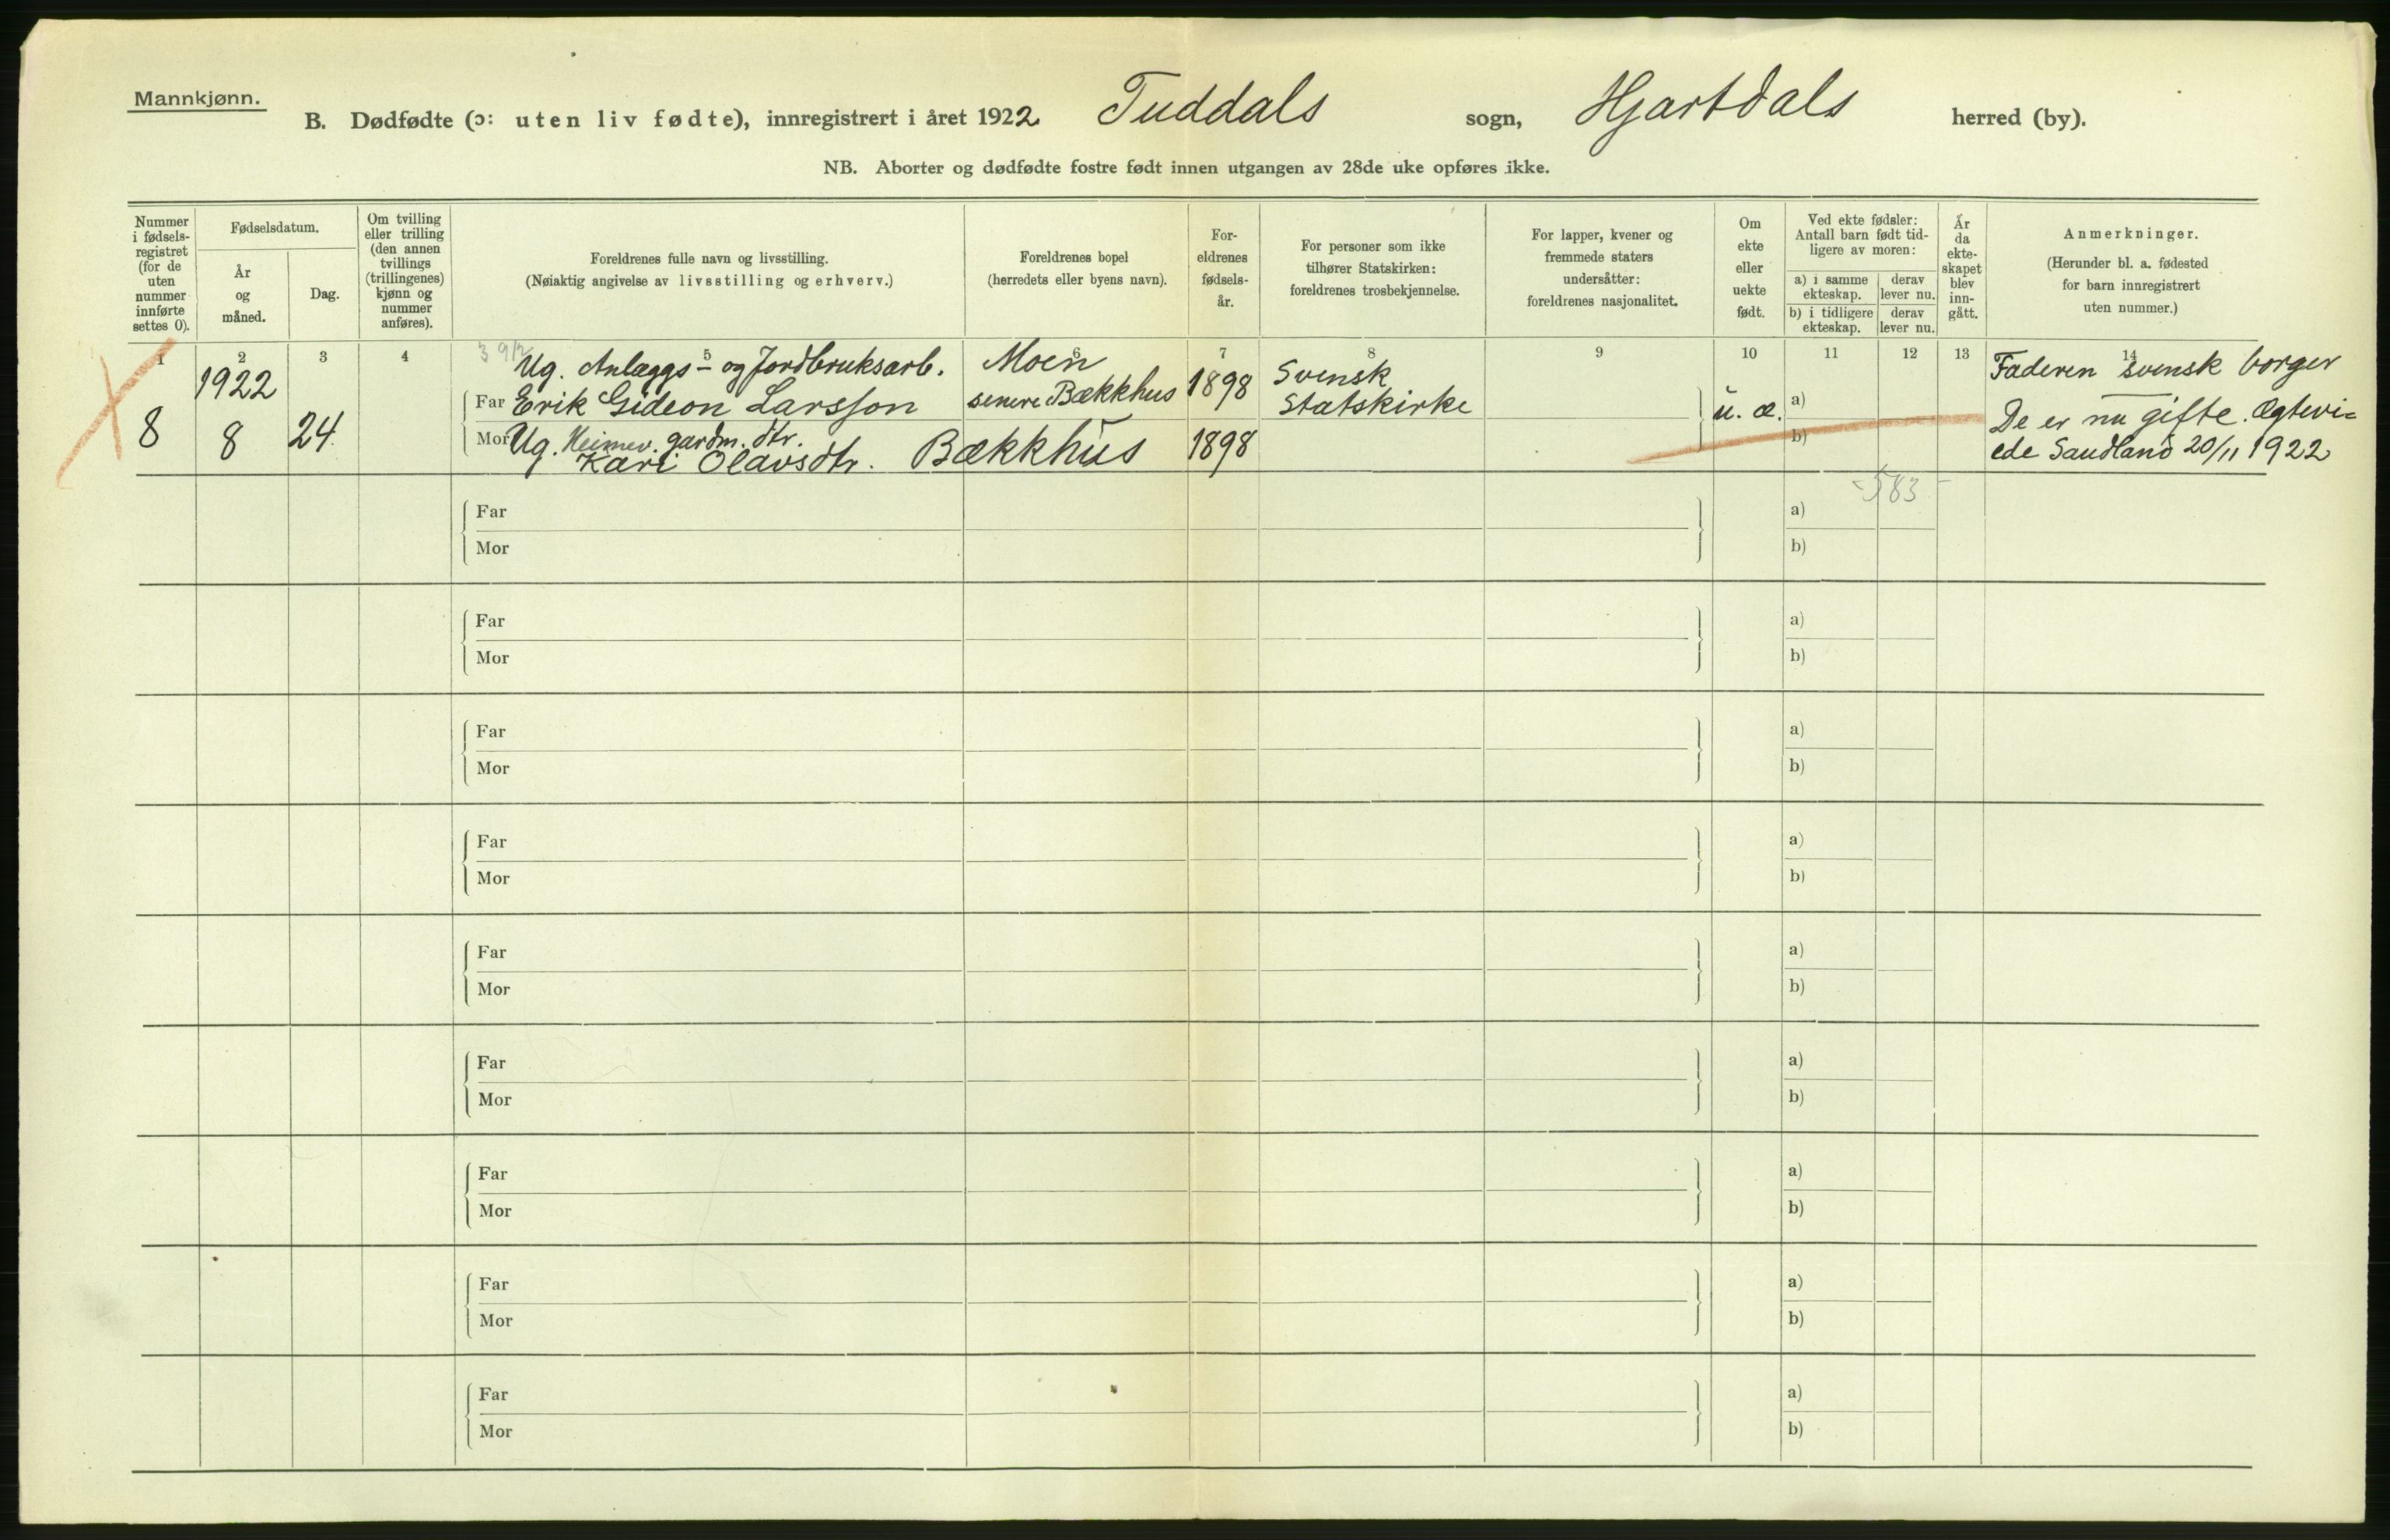 Mannkjønn.
B. Dødfødte (ɔ: uten liv fødte), innregistrert i året 1922 Tuddals sogn, Hjartdals herred (by).
NB. Aborter og dødfødte fostre født innen utgangen av 28de uke opføres ikke.
Nummer i fødsels- registret (for de uten nummer innførte settes 0).
Fødselsdatum.
År og måned.
Dag.
Om tvilling eller trilling (den annen tvillings (trillingenes) kjønn og nummer anføres).
Foreldrenes fulle navn og livsstilling.
(Nøiaktig angivelse av livsstilling og erhverv.)
Foreldrenes bopel
(herredets eller byens navn).
For- eldrenes fødsels- år.
For personer som ikke tilhører Statskirken: foreldrenes trosbekjennelse.
For lapper, kvener og fremmede staters undersåtter: foreldrenes nasjonalitet.
Om ekte eller uekte født.
Ved ekte fødsler: Antall barn født tid- ligere av moren:
a) i samme ekteskap.
derav lever nu.
b) i tidligere ekteskap.
derav lever nu.
År da ekte- skapet blev inn- gått.
Anmerkninger.
(Herunder bl. a. fødested for barn innregistrert uten nummer.)
1 2 3 4 5 6 7 8 9 10 11 12 13 14
8 1922 8 24.
Ug. Anlæggs- og Jordbruksarb.
Far Erik Gideon Larsson
Moen
senere Bækkhus
1898
Svensk
Statskirke
u. æ.
a)
Faderen svensk borger
Mor Ug. Heimev. gardm. dtr.
Kari Olavsdtr. Bækkhus
1898
b)
De er nu gifte. Ægtevi=
ede Saudland 20/11 1922
-583-
Far a)
Mor b)
Far a)
Mor b)
Far a)
Mor b)
Far a)
Mor b)
Far a)
Mor b)
Far a)
Mor b)
Far a)
Mor b)
Far a)
Mor b)
Far a)
Mor b)